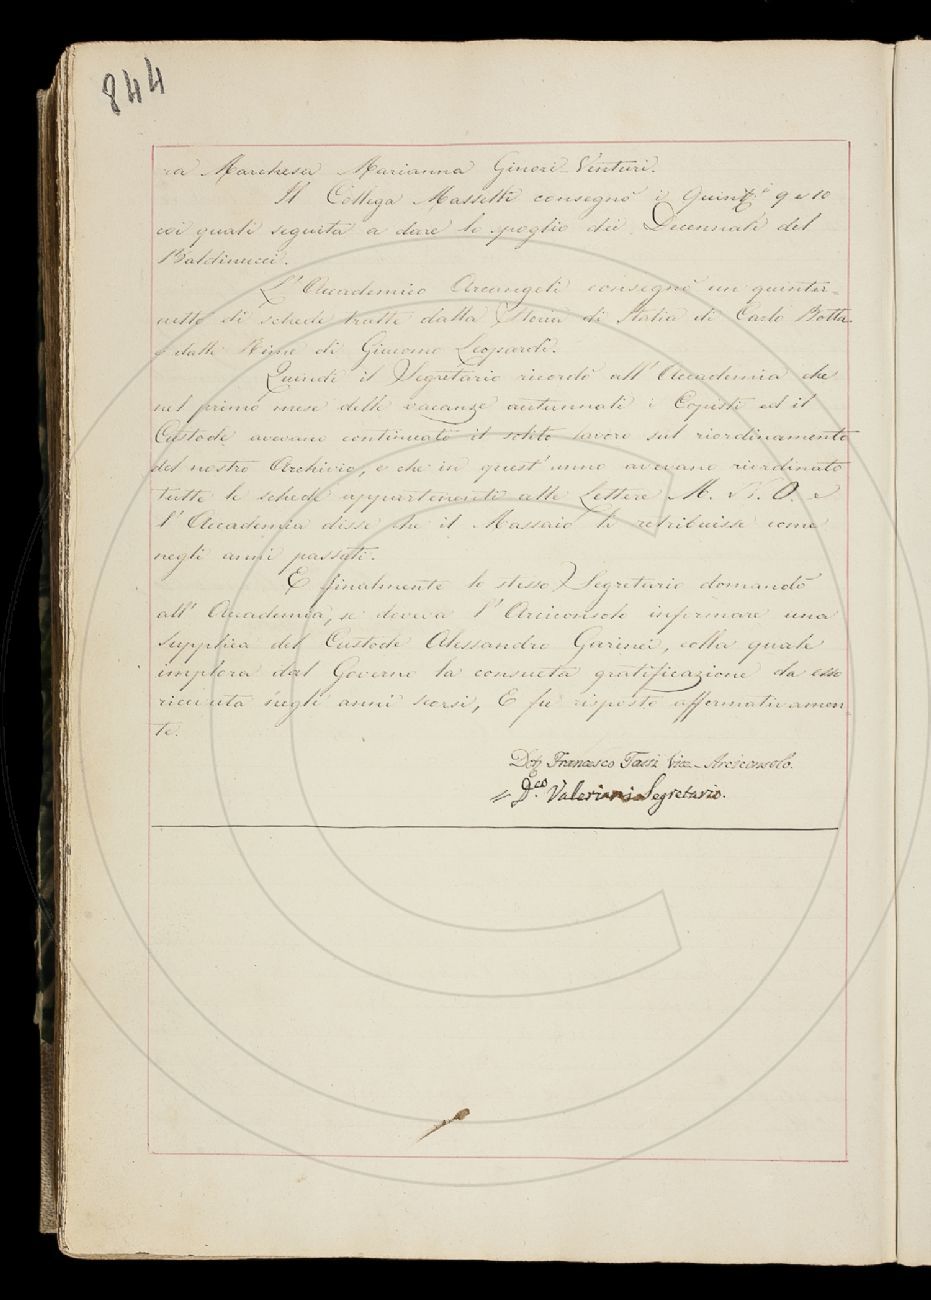 844
ra Marchesa Marianna Ginori Venturi.
Il Collega Massetti consegnò i Quint.i 9 e 10
coi quali seguita a dare lo spoglio dei Decennali del
Baldinucci.
L'Accademico Arcangeli consegnò un quinter-
netto di schede tratte dalla Storia di Italia di Carlo Botta
e dalle Rime di Giacomo Leopardi.
Quindi il Segretario ricordò all'Accademia che
nel primo mese delle vacanze autunnali i Copisti ed il
Custode avevano continuato il solito lavoro sul riordinamento
del nostro Archivio, e che in quest'anno avevano riordinato
tutte le schede appartenenti alle Lettere M. N. O. e
l'Accademia disse che il Massaio li retribuisse come
negli anni passati.
E finalmente lo stesso Segretario domandò
all'Accademia, se doveva l'Arciconsolo infirmare una
supplica del Custode Alessandro Guerinei, colla quale
implora dal Governo la consueta gratificazione da esso
ricevuta negli anni scorsi, E fu risposto affermativamen
te.
Dott. Francesco Tassi Vice-Arciconsolo.
= D.co Valeriani Segretario.